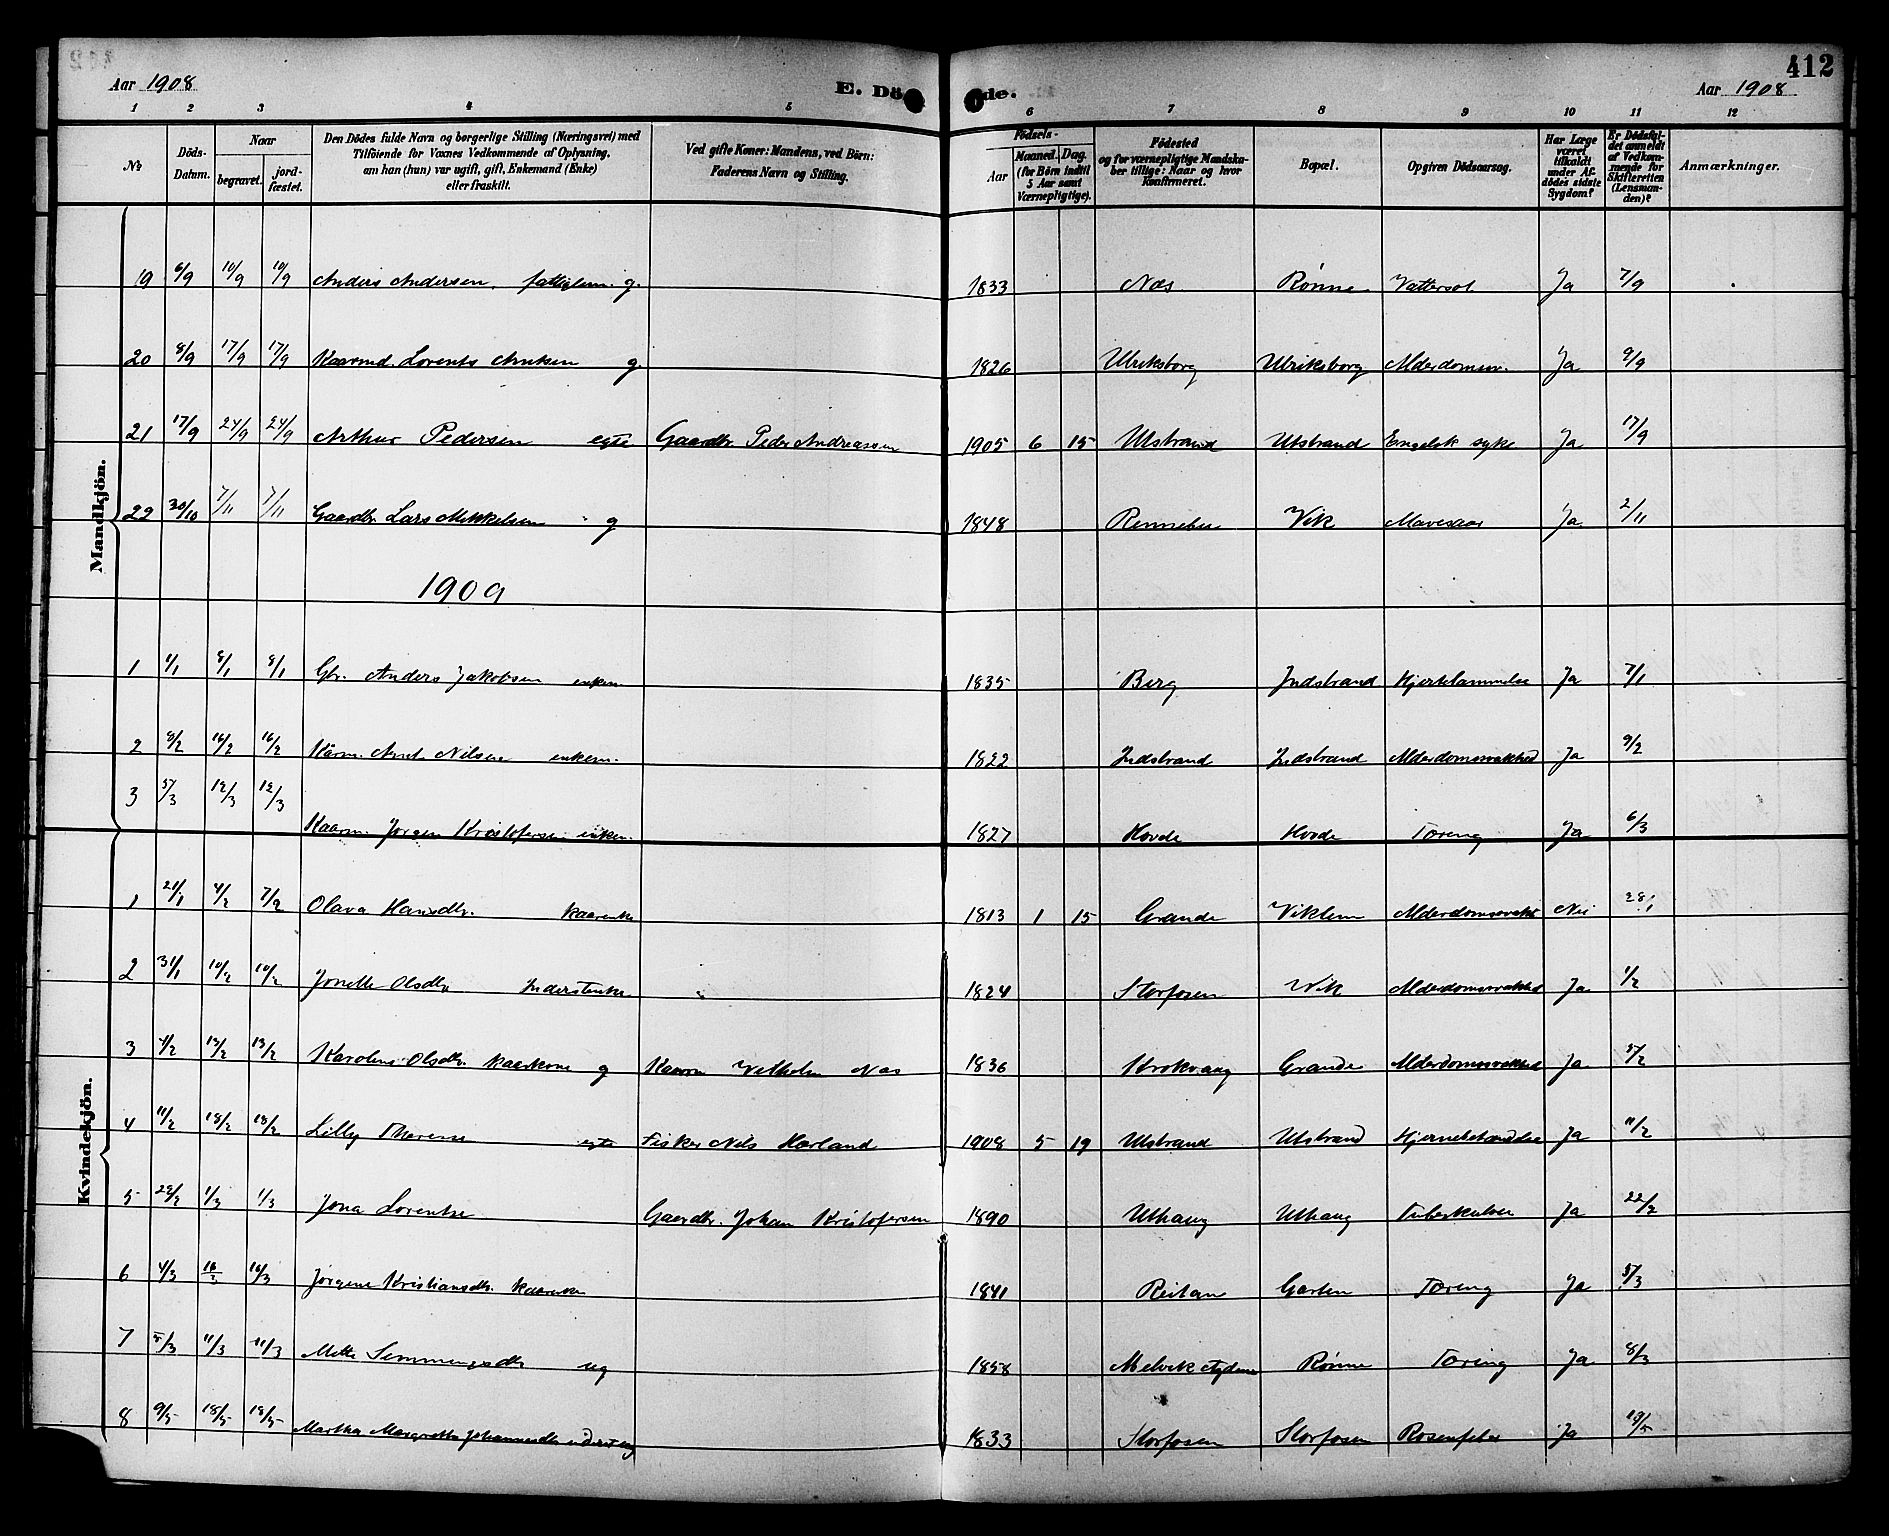 412
Aar 1908
E. Dö de.
Aar 1908
1 2 3 4 5 6 7 8 9 10 11 12
No
Döds-Datum.
Naar
begravet.
jord-fæstet.
Den Dödes fulde Navn og borgerlige Stilling (Næringsvei) med
Tilföiende for Voxnes Vedkommende af Oplysning,
om han (hun) var ugift, gift, Enkemand (Enke)
eller fraskilt.
Ved gifte Koner: Mandens, ved Börn:
Faderens Navn og Stilling.
Födsels-
Aar
Maaned. Dag.
(for Börn indtil
5 Aar samt
Værnepligtige).
Födested
og for værnepligtige Mandska-
ber tillige: Naar og hvor
Konfirmeret.
Bopæl.
Opgiven Dödsaarsag.
Har Læge
været
tilkaldt
under Af-
dödes sidste
Sygdom?
Er Dödsfal-
det anmeldt
af Vedkom-
mende for
Skifteretten
(Lensman-
den)?
Anmærkninger.
Mandkjön.
19 6/9 10/9 10/9 Anders Andersen. fattiglem. g. 1833 Næs Rønne Vattersot Ja 7/9
20 8/9 17/9 17/9 Kaarmd. Lorents Arntsen g. 1826 Ulriksborg Ulriksborg Alderdomsv. Ja 9/9
21 17/9 24/9 24/9 Arthur Pedersen egte Gaardbr. Peder Andreassen 1905 6 15 Utstrand Utstrand Engelsk syke Ja 17/9
22 30/10 7/11 7/11 Gaardbr. Lars Mikkelsen g 1848 Rennebu Vik Mavesaar Ja 2/11
1909
1 1/1 8/1 8/1 Gbr. Anders Jakobsen enkem. 1835 Berg Indstrand Hjertelammelse Ja 7/1
2 8/2 16/2 16/2 Kårm. Arnt Nilsen enkem. 1822 Indstrand Indstrand Alderdomssvakhed Ja 9/2
3 5/3 12/3 12/3 Kaarm. Jørgen Kristofersen enkem. 1827 Hovde Hovde Tæring Ja 6/3
Kvindekjön.
1 21/1 4/2 7/2 Olava Hansdtr. kaarenke 1813 1 15 Grande Viklem Alderdomssvakh Nei 28/1
2 31/1 10/2 10/2 Jonette Olsdtr Inderstenke " 1824 Storfosen Vik Alderdomssvakhed Ja 1/2
3 4/2 13/2 13/2 Karoline Olsdtr. kaarkone g Kaarm Vilhelm Næs 1836 Krokvaag Grande Alderdomssvakhed Ja 5/2
4 11/2 18/2 18/2 Lilly Therese egte Fisker Nils Hærland 1908 5 19 Utstrand Utstrand Hjernebetændelse Ja 11/2
5 22/2 1/3 1/3 Jona Lorentse Gaardbr. Johan Kristofersen 1890 Uthaug Uthaug Tuberkulose Ja 22/2
6 4/3 16/3 16/3 Jørgine Kristiansdtr. kaarenke 1841 Reitan Garten Tæring Ja 5/3
7 5/3 11/3 11/3 Mette Semmingsdtr ug 1858 Rønne Tæring Ja 8/3
8 9/5 18/5 18/5 Martha Margrethe Johannesdtr inderst ug 1833 Storfosen Storfosen Rosenfeber Ja 19/5